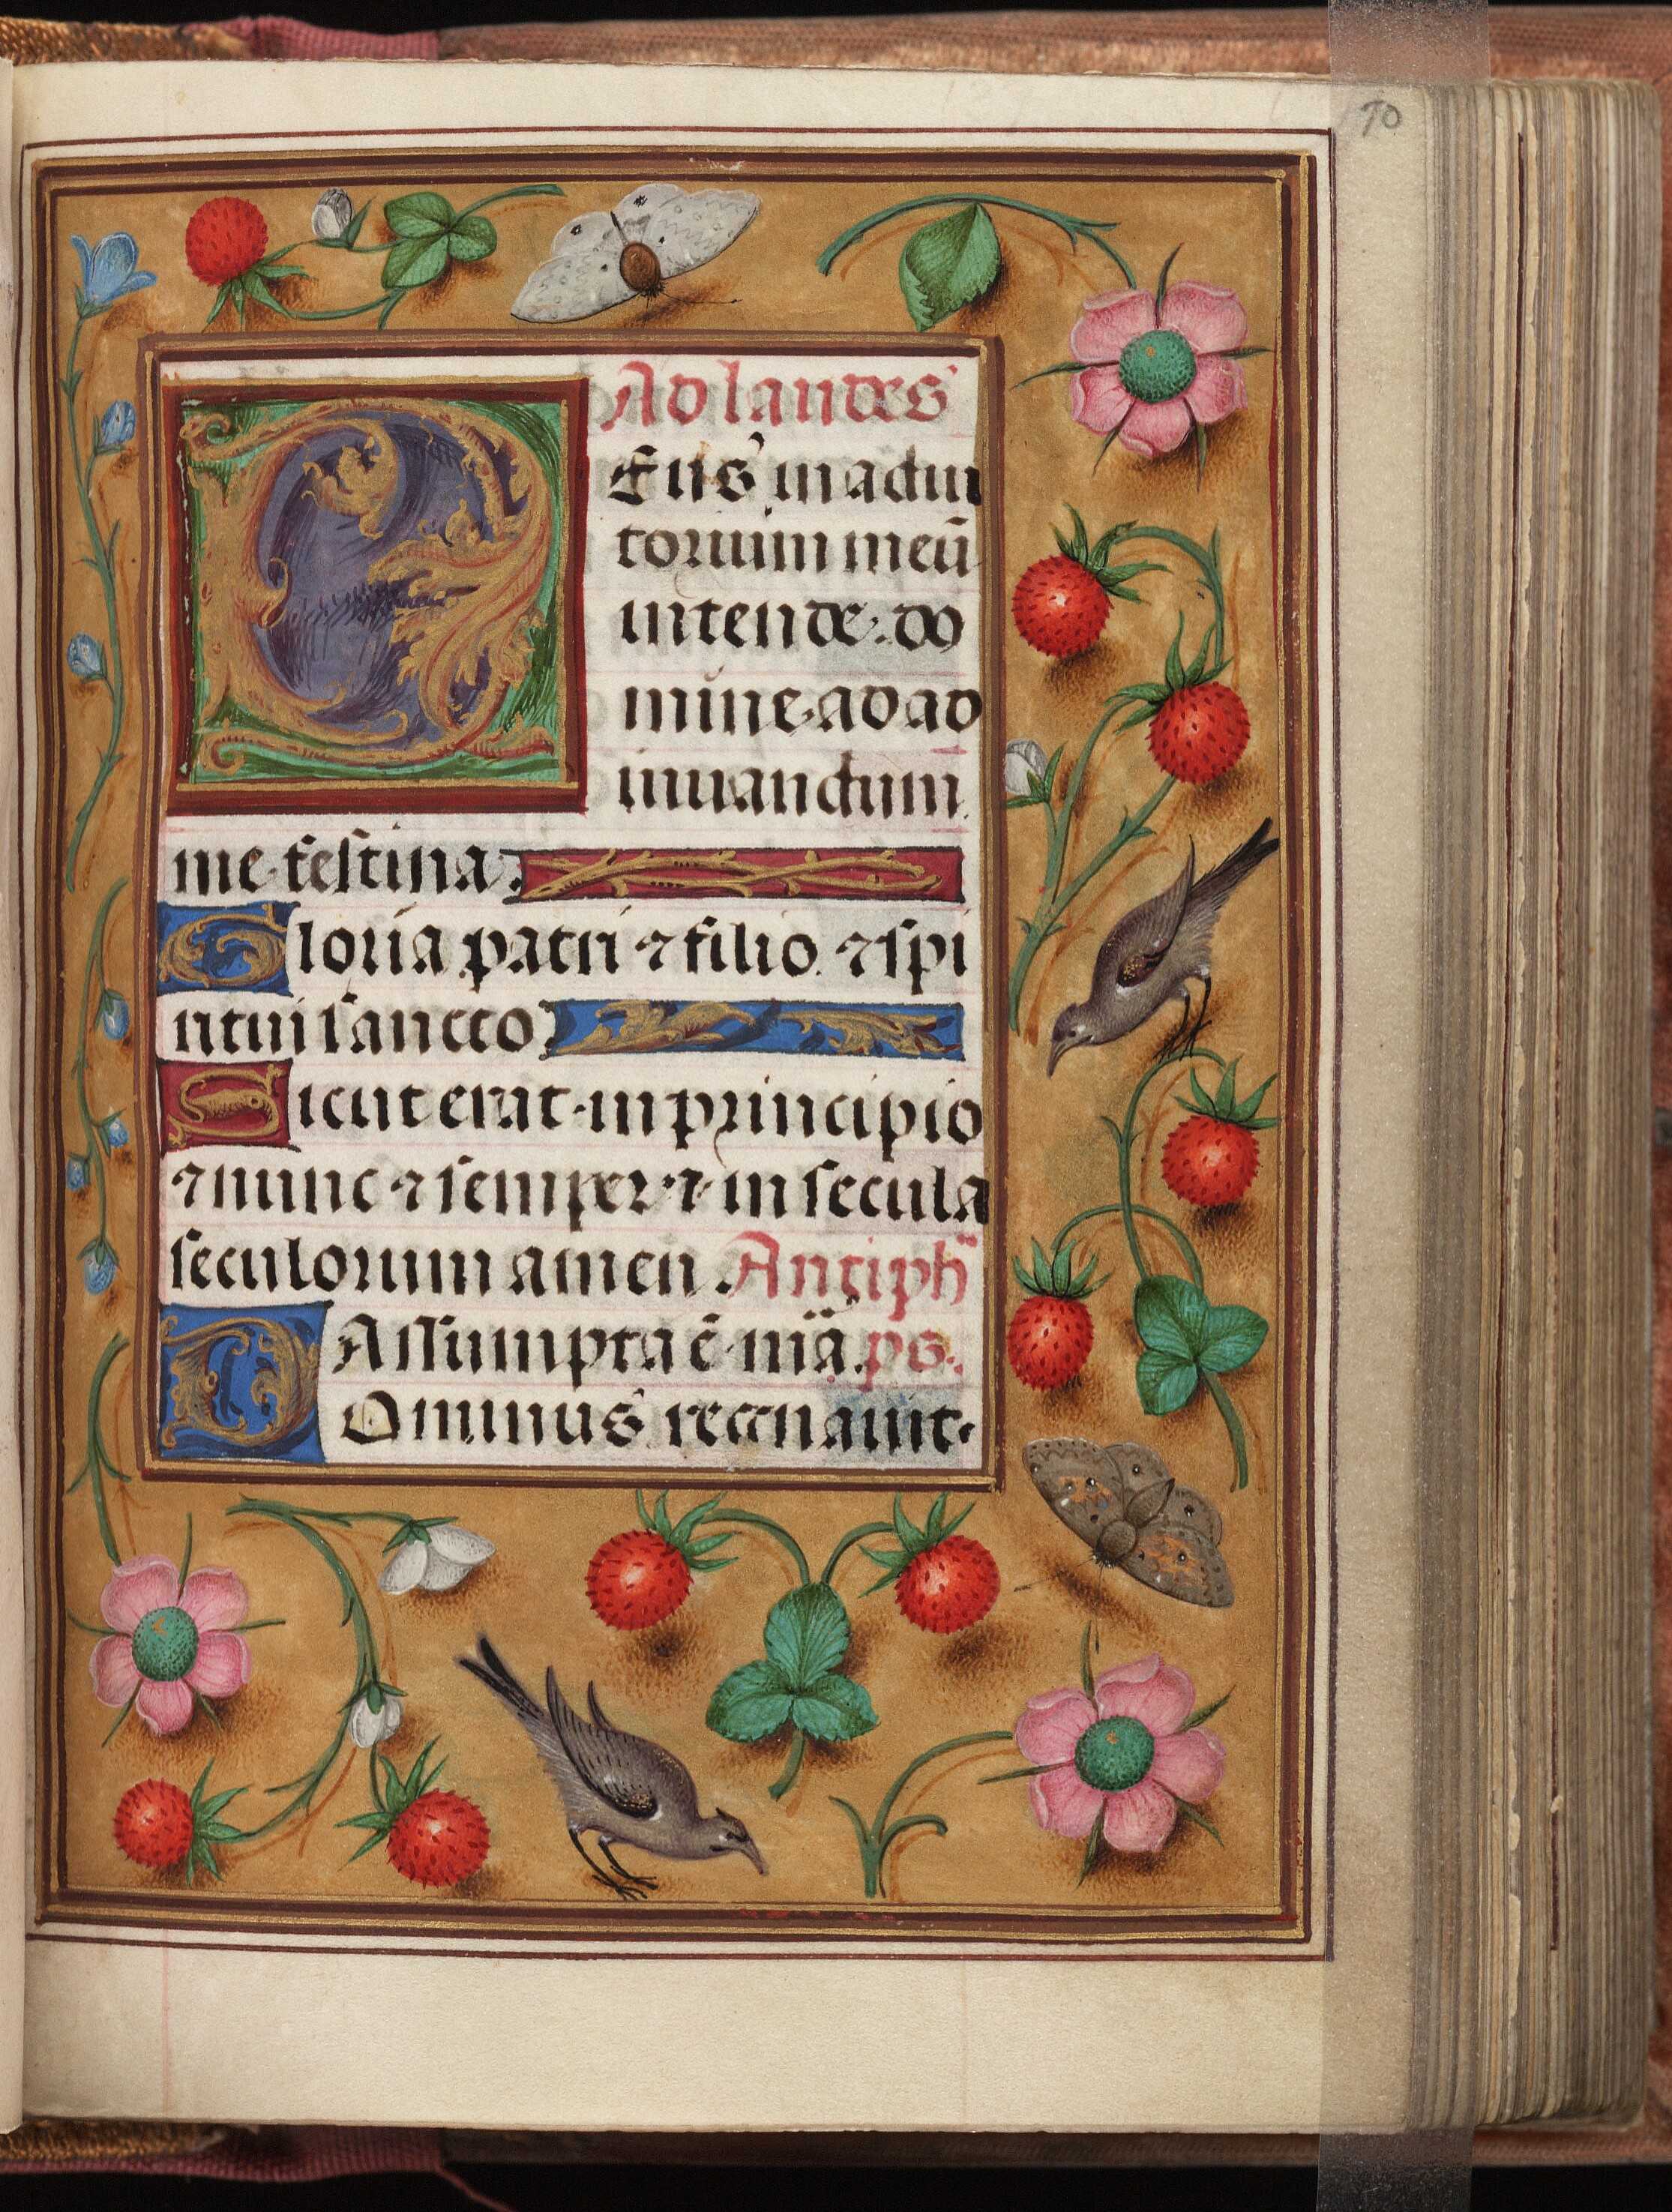 70
Ad laudes
DEus in adiu
torium meū
intende. do
mine ad ad
iuuandum
me festina.
Gloria patri ⁊ filio. ⁊ spi
ritui sancto
Sicut erat in principio
⁊ nunc ⁊ semper ⁊ in secula
seculorum amen. Antiphº
Assumpta ē mīa. ps.
DOminus regnauit.